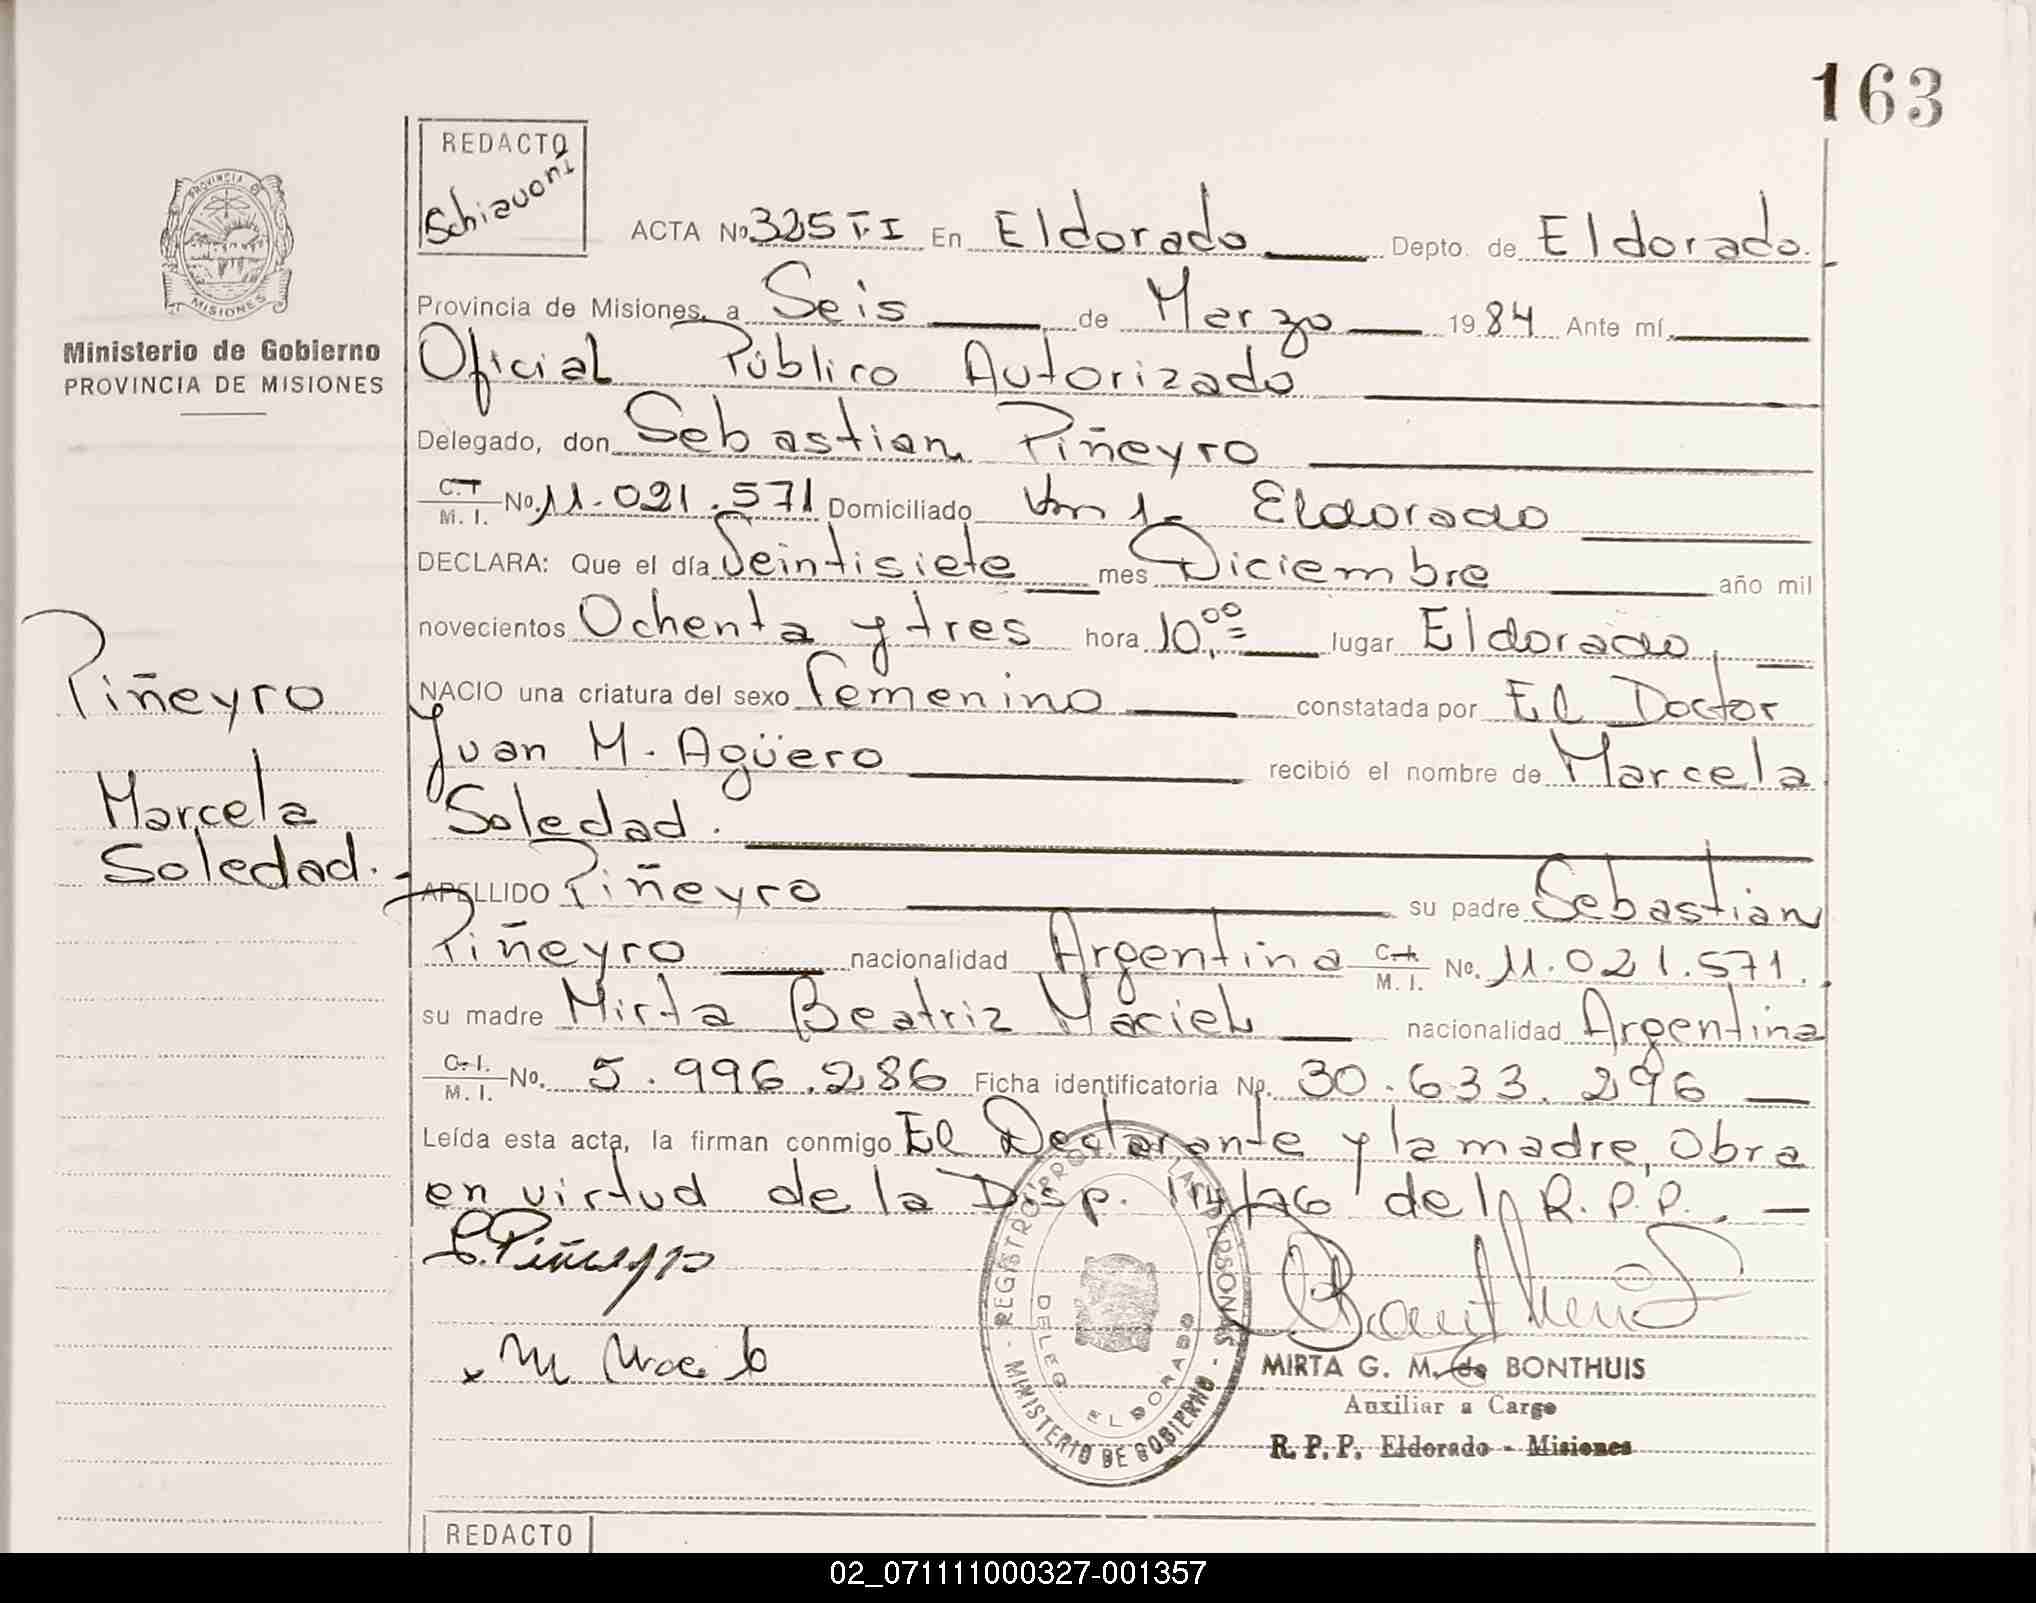 163
REDACTO
Schiavoni
PROVINCIA DE
MISIONES
Ministerio de Gobierno
PROVINCIA DE MISIONES
ACTA Nº 325 T.I En Eldorado Depto. de Eldorado.
Provincia de Misiones, a Seis de Marzo 1984 Ante mí,
Oficial Público Autorizado
Delegado, don Sebastian Piñeyro
C.I. M. I. Nº. 11.021.571 Domiciliado Km 1- Eldorado
DECLARA: Que el día Veintisiete mes Diciembre año mil
novecientos Ochenta y tres hora 10,00 lugar Eldorado,
NACIO una criatura del sexo Femenino constatada por El Doctor
Juan M. Agüero recibió el nombre de Marcela
Soledad.
APELLIDO Piñeyro su padre Sebastian
Piñeyro nacionalidad Argentina C.I. M. I. Nº. 11.021.571.
su madre Mirta Beatriz Maciel nacionalidad Argentina
C.I. M. I. Nº. 5.996.286 Ficha identificatoria Nº. 30.633.296
Leída esta acta, la firman conmigo El Declarante y la madre, Obra
en virtud de la Disp. 114/76 del R.P.P. -
Piñeyro
Marcela
Soledad.-
S. Piñeyro
REGISTRO PROV. DE LAS PERSONAS
DELEG. ELDORADO
- MINISTERIO DE GOBIERNO -
MIRTA G. M. de BONTHUIS
Auxiliar a Cargo
R. P. P. Eldorado - Misiones
REDACTO
02_071111000327-001357